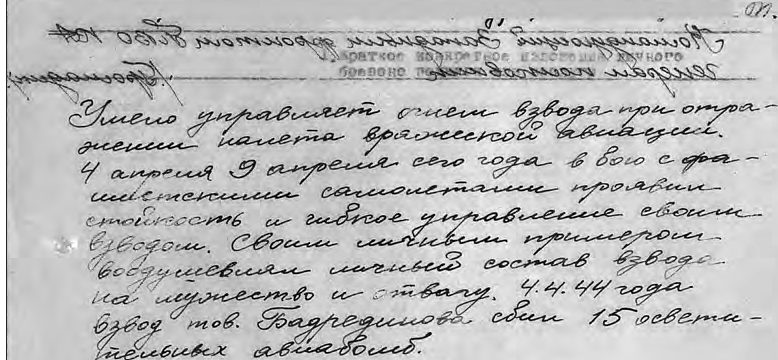 Командующий Западным фронтом ПВО
Краткое конкретное изложение личного
боевого
генерал
Умело управляет огнем взвода при отра-
жении налета вражеской авиации.
4 апреля 9 апреля сего года в бою с фа-
шистскими самолетами проявил
стойкость и гибкое управление своим
взводом. Своим личным примером
воодушевлял личный состав взвода
на мужество и отвагу. 4.4.44 года
взвод тов. Бадрединова сбил 15 освети-
тельных авиабомб.